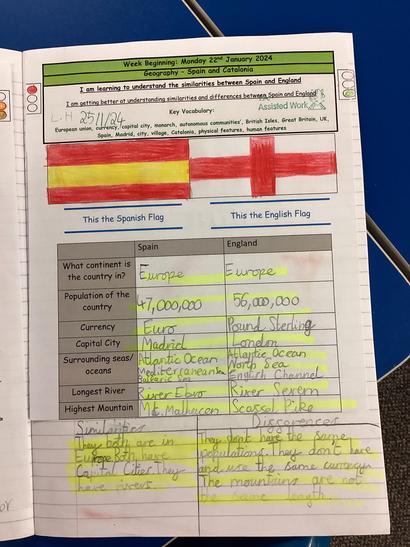 Week Beginning: Monday 22nd January 2024
Geography – Spain and Catalonia
I am learning to understand the similarities between Spain and England
I am getting better at understanding similarities and differences between Spain and England
Assisted Work
L.H 25/1/24
Key Vocabulary:
European union, currency, capital city, monarch, autonomous communities', British Isles, Great Britain, UK,
Spain, Madrid, city, village, Catalonia, physical features, human features
This the Spanish Flag
This the English Flag
Spain England
What continent is the country in? Europe Europe
Population of the country 47,000,000 56,000,000
Currency Euro Pound Sterling
Capital City Madrid London
Surrounding seas/ Atlantic Ocean Atlantic Ocean
oceans Mediterranean North Sea
Balearic Sea English Channel
Longest River River Ebro River Severn
Highest Mountain Mt. Mulhacen Scafell Pike
Similarities
They both are in
Europe. Both have
Capital Cities. They
have rivers.
Differences
They don't have the same
populations. They don't have
and use the same currency.
The mountains are not
the same length.